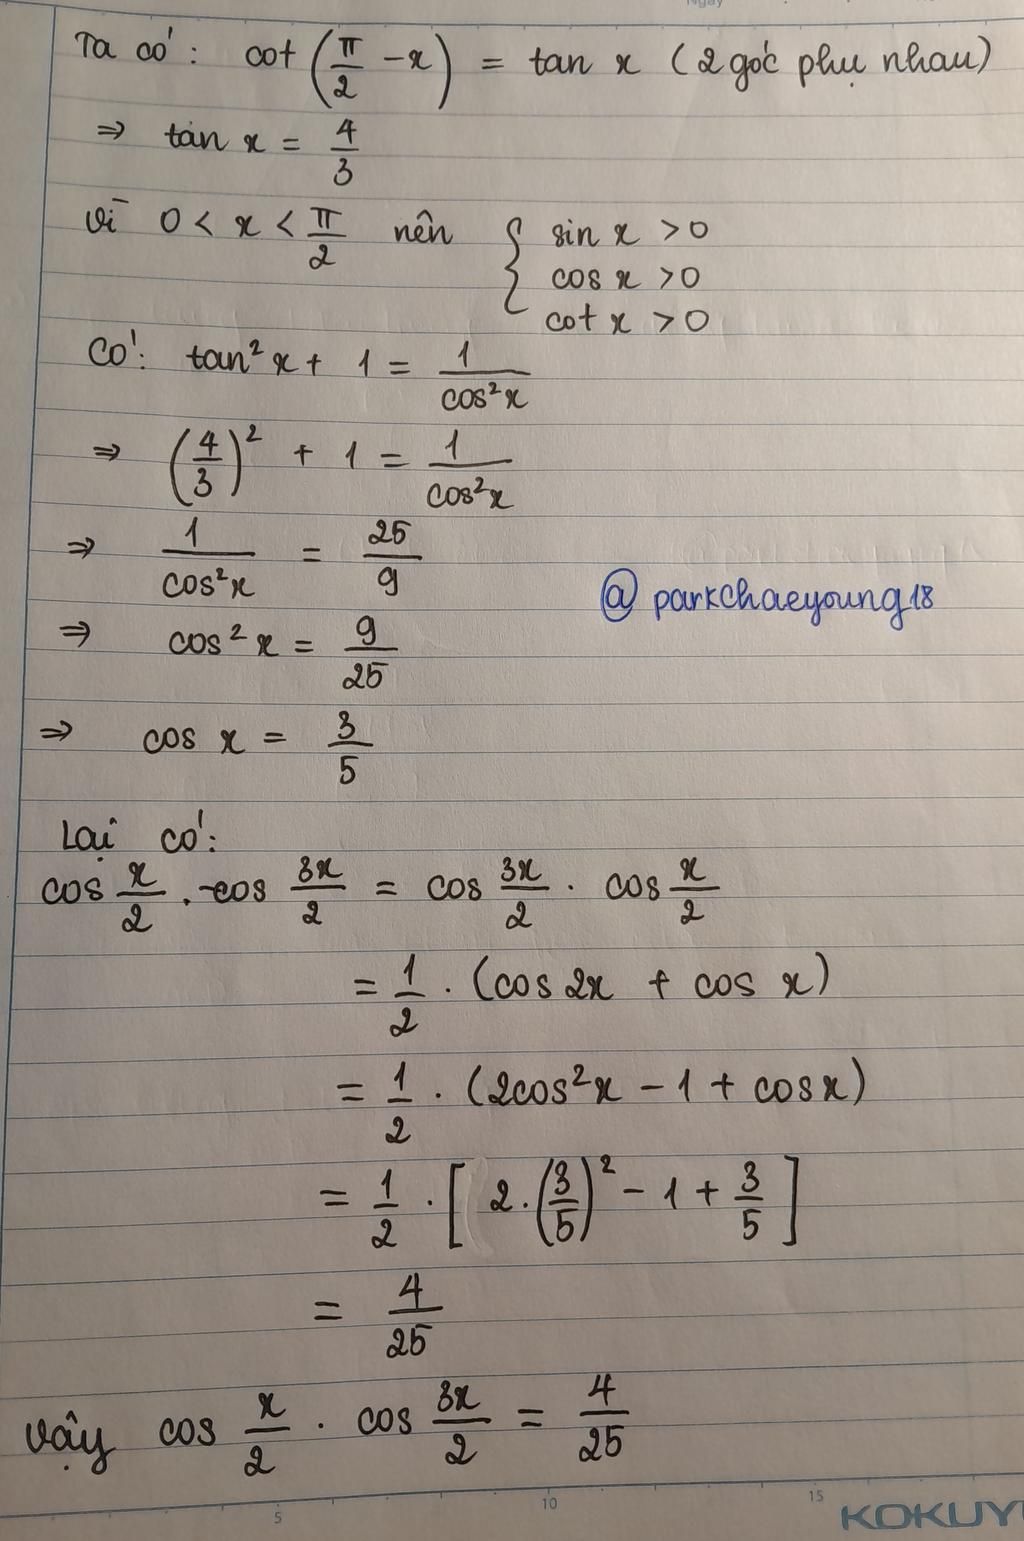 Ngày
Ta có: cot(π/2 - x) = tan x (2 góc phụ nhau)
⇒ tan x = 4/3
Vì 0 < x < π/2 nên { sin x > 0
cos x > 0
cot x > 0
Có: tan²x + 1 = 1/cos²x
⇒ (4/3)² + 1 = 1/cos²x
⇒ 1/cos²x = 25/9
@parkchaeyoung18
⇒ cos²x = 9/25
⇒ cos x = 3/5
Lại có:
cos x/2 . cos 3x/2 = cos 3x/2 . cos x/2
= 1/2 . (cos 2x + cos x)
= 1/2 . (2cos²x - 1 + cosx)
= 1/2 . [2.(3/5)² - 1 + 3/5]
= 4/25
Vậy cos x/2 . cos 3x/2 = 4/25
5 10 15
KOKUY